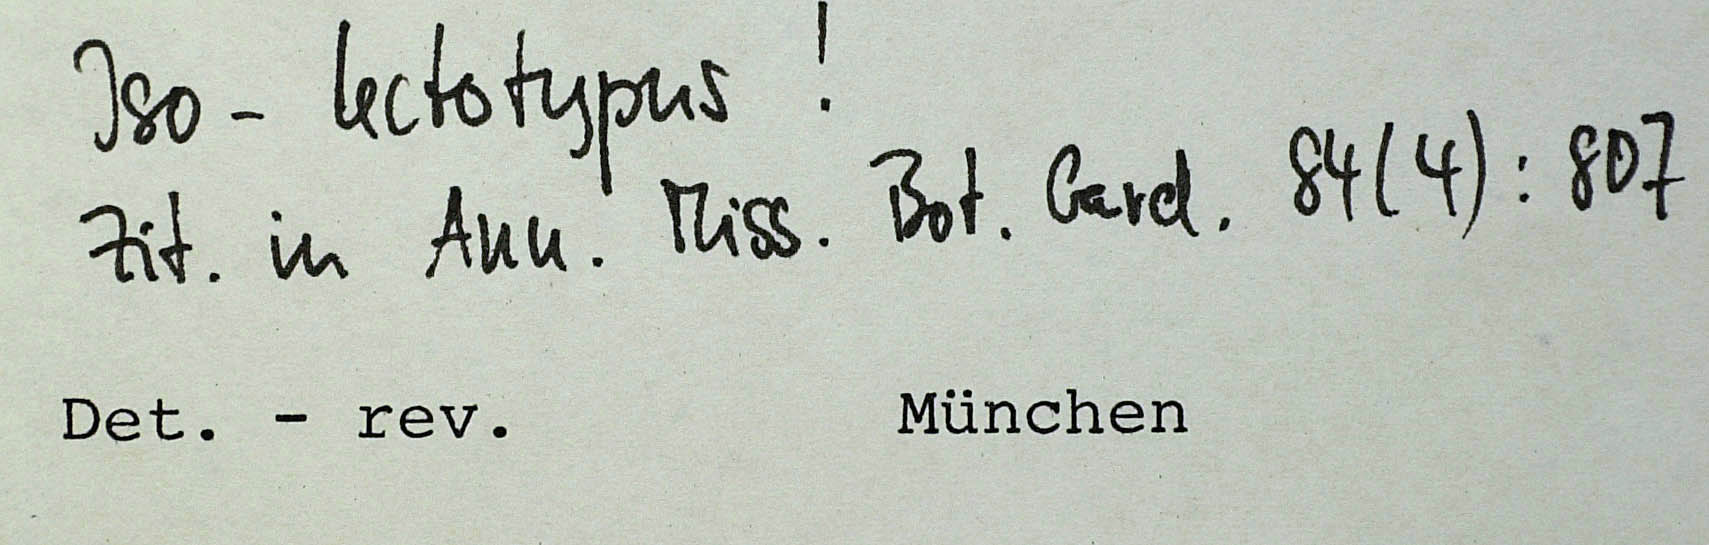 Iso - lectotypus !
Zit. in Ann. Miss. Bot. Gard. 84(4): 807
Det. - rev. München